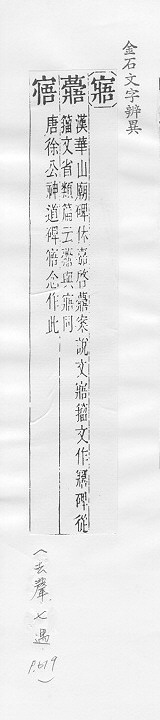 金石文字辨異
寤
蘁漢華山廟碑休嘉啓蘁案說文寤籀文作𥨮碑從
籀文省類篇云蘁與寤同
㾏唐徐公神道碑㾏念作此
(去聲 七遇 P.619)